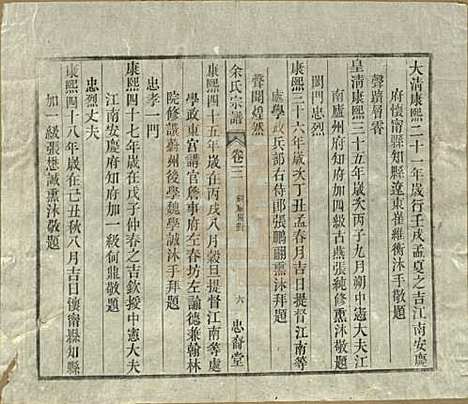 大清康熙二十一年歲行壬戌孟夏之吉江南安慶
府懷甯縣知縣遼東崔維衡沐手敬題
聲蹟層霄
皇清康熙三十五年歲次丙子九月朔中憲大夫江
南廬州府知府加四級古燕張純修熏沐敬題
閥門忠烈
康熙三十六年歲次丁丑孟春月吉日提督江南等
處學政兵部右侍郎張鵬翮熏沐拜題
聲聞煌然
余氏宗譜
卷三
六
忠裔堂
康熙四十五年歲在丙戌八月穀旦提督江南等處
學政東宮講官詹事府左春坊左諭德兼翰林
院修譔蔚州後學魏學誠沐手拜題
忠孝一門
康熙四十七年歲在戊子仲春之吉欽授中憲大夫
江南安慶府知府加一級何龍敬題
忠烈丈夫
康熙四十八年歲在己丑秋八月吉日懷甯縣知縣
加一級張懋誠熏沐敬題